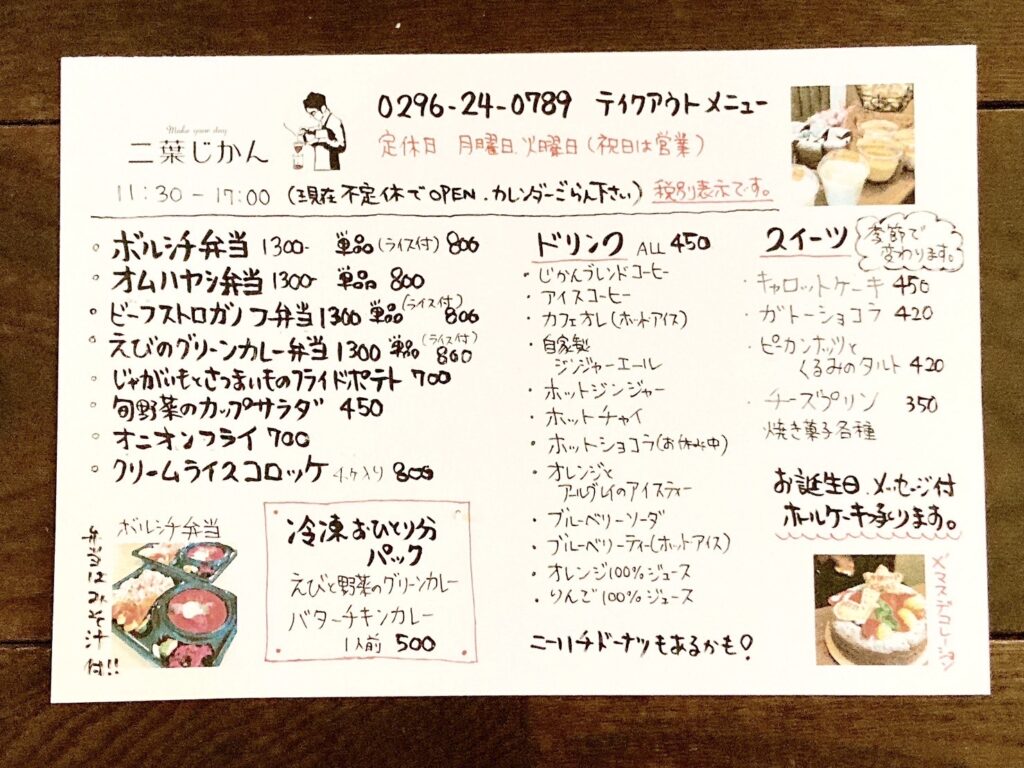 0296-24-0789 テイクアウトメニュー
Make your day
二葉じかん
定休日 月曜日.火曜日(祝日は営業)
11:30-17:00 (現在不定休でOPEN.カレンダーごらん下さい) 税別表示です。
ボルシチ弁当 1300- 単品(ライス付)800
オムハヤシ弁当 1300- 単品 800
ビーフストロガノフ弁当 1300 単品(ライス付)800
えびのグリーンカレー弁当 1300 単品(ライス付)800
じゃがいもとさつまいものフライドポテト 700
旬野菜のカップサラダ 450
オニオンフライ 700
クリームライスコロッケ チーズ入り 800
ボルシチ弁当
弁当はみそ汁付!!
冷凍おひとり分
パック
えびと野菜のグリーンカレー
バターチキンカレー
1人前 500
ドリンク ALL 450
・じかんブレンドコーヒー
・アイスコーヒー
・カフェオレ(ホットアイス)
・自家製
ジンジャーエール
・ホットジンジャー
・ホットチャイ
・ホットショコラ(お休み中)
・オレンジと
アールグレイのアイスティー
・ブルーベリーソーダ
・ブルーベリーティー(ホットアイス)
・オレンジ100%ジュース
・りんご100%ジュース
ニーハチドーナツもあるかも?
スイーツ
季節で
変わります。
・キャロットケーキ 450
・ガトーショコラ 420
・ピーカンナッツと
くるみのタルト 420
・チーズプリン 350
焼き菓子各種
お誕生日.メッセージ付
ホールケーキ承ります。
デコレーション